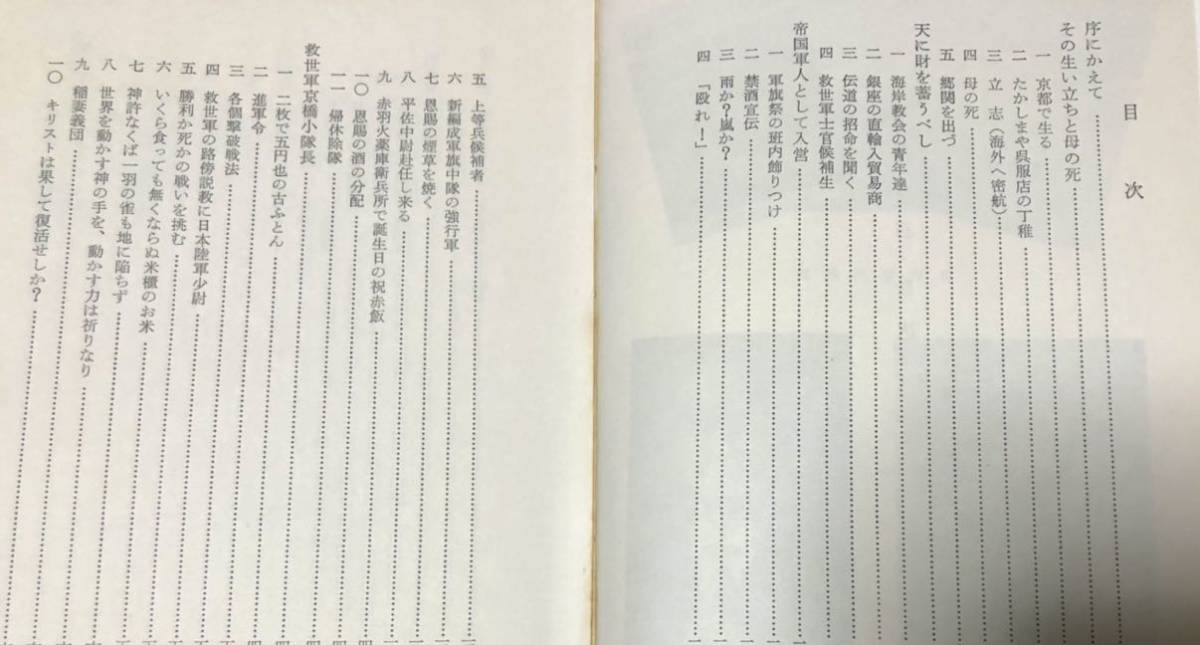 目次
序にかえて
その生い立ちと母の死
一 京都で生る
二 たかしまや呉服店の丁稚
三 立志(海外へ密航)
四 母の死
五 郷関を出づ
天に財を蓄うべし
一 海岸教会の青年達
二 銀座の直輸入貿易商
三 伝道の招命を聞く
四 救世軍士官候補生
帝国軍人として入営
一 軍旗祭の班内飾りつけ
二 禁酒宣伝
三 雨か?嵐か?
四 「殴れ!」
五 上等兵候補者
六 新編成軍旗中隊の強行軍
七 恩賜の煙草を焼く
八 平佐中尉赴任し来る
九 赤羽火薬庫衛兵所で誕生日の祝赤飯
一〇 恩賜の酒の分配
一一 帰休除隊
救世軍京橋小隊長
一 二枚で五円也の古ぶとん
二 進軍令
三 各個撃破戦法
四 救世軍の路傍説教に日本陸軍少尉
五 勝利か死かの戦いを挑む
六 いくら食っても無くならぬ米櫃のお米
七 神許なくば一羽の雀も地に陥ちず
八 世界を動かす神の手を、動かす力は祈りなり
九 稲妻義団
一〇 キリストは果して復活せしか?